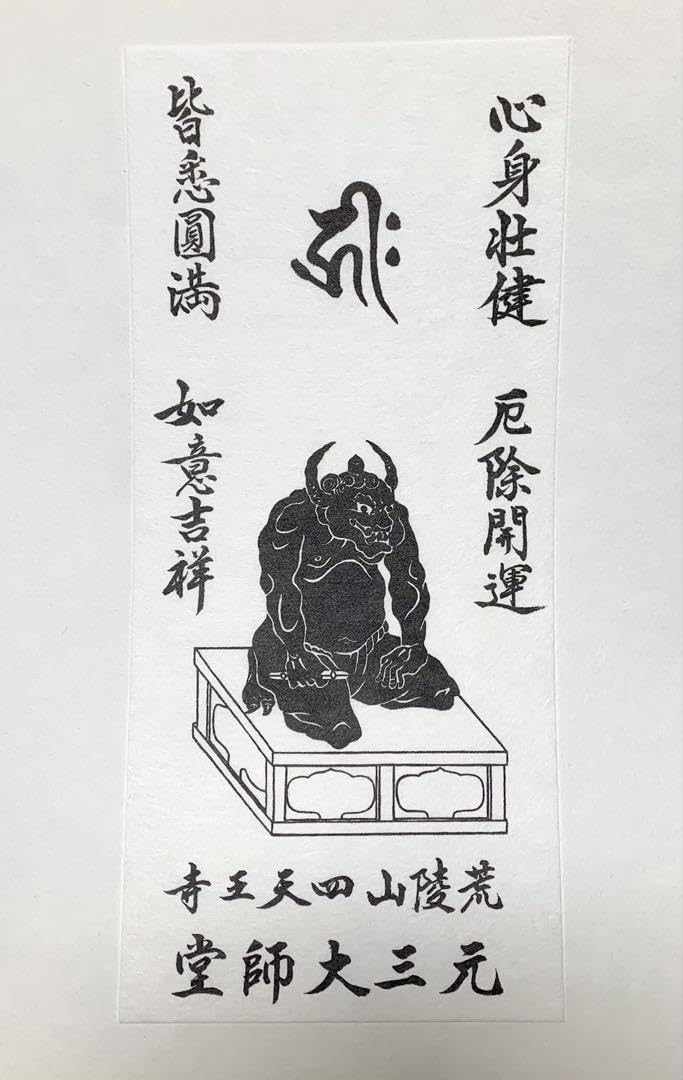 心身壮健 厄除開運
𑖮𑖿𑖨𑖱𑖾
皆悉圓満 如意吉祥
荒陵山四天王寺
元三大師堂